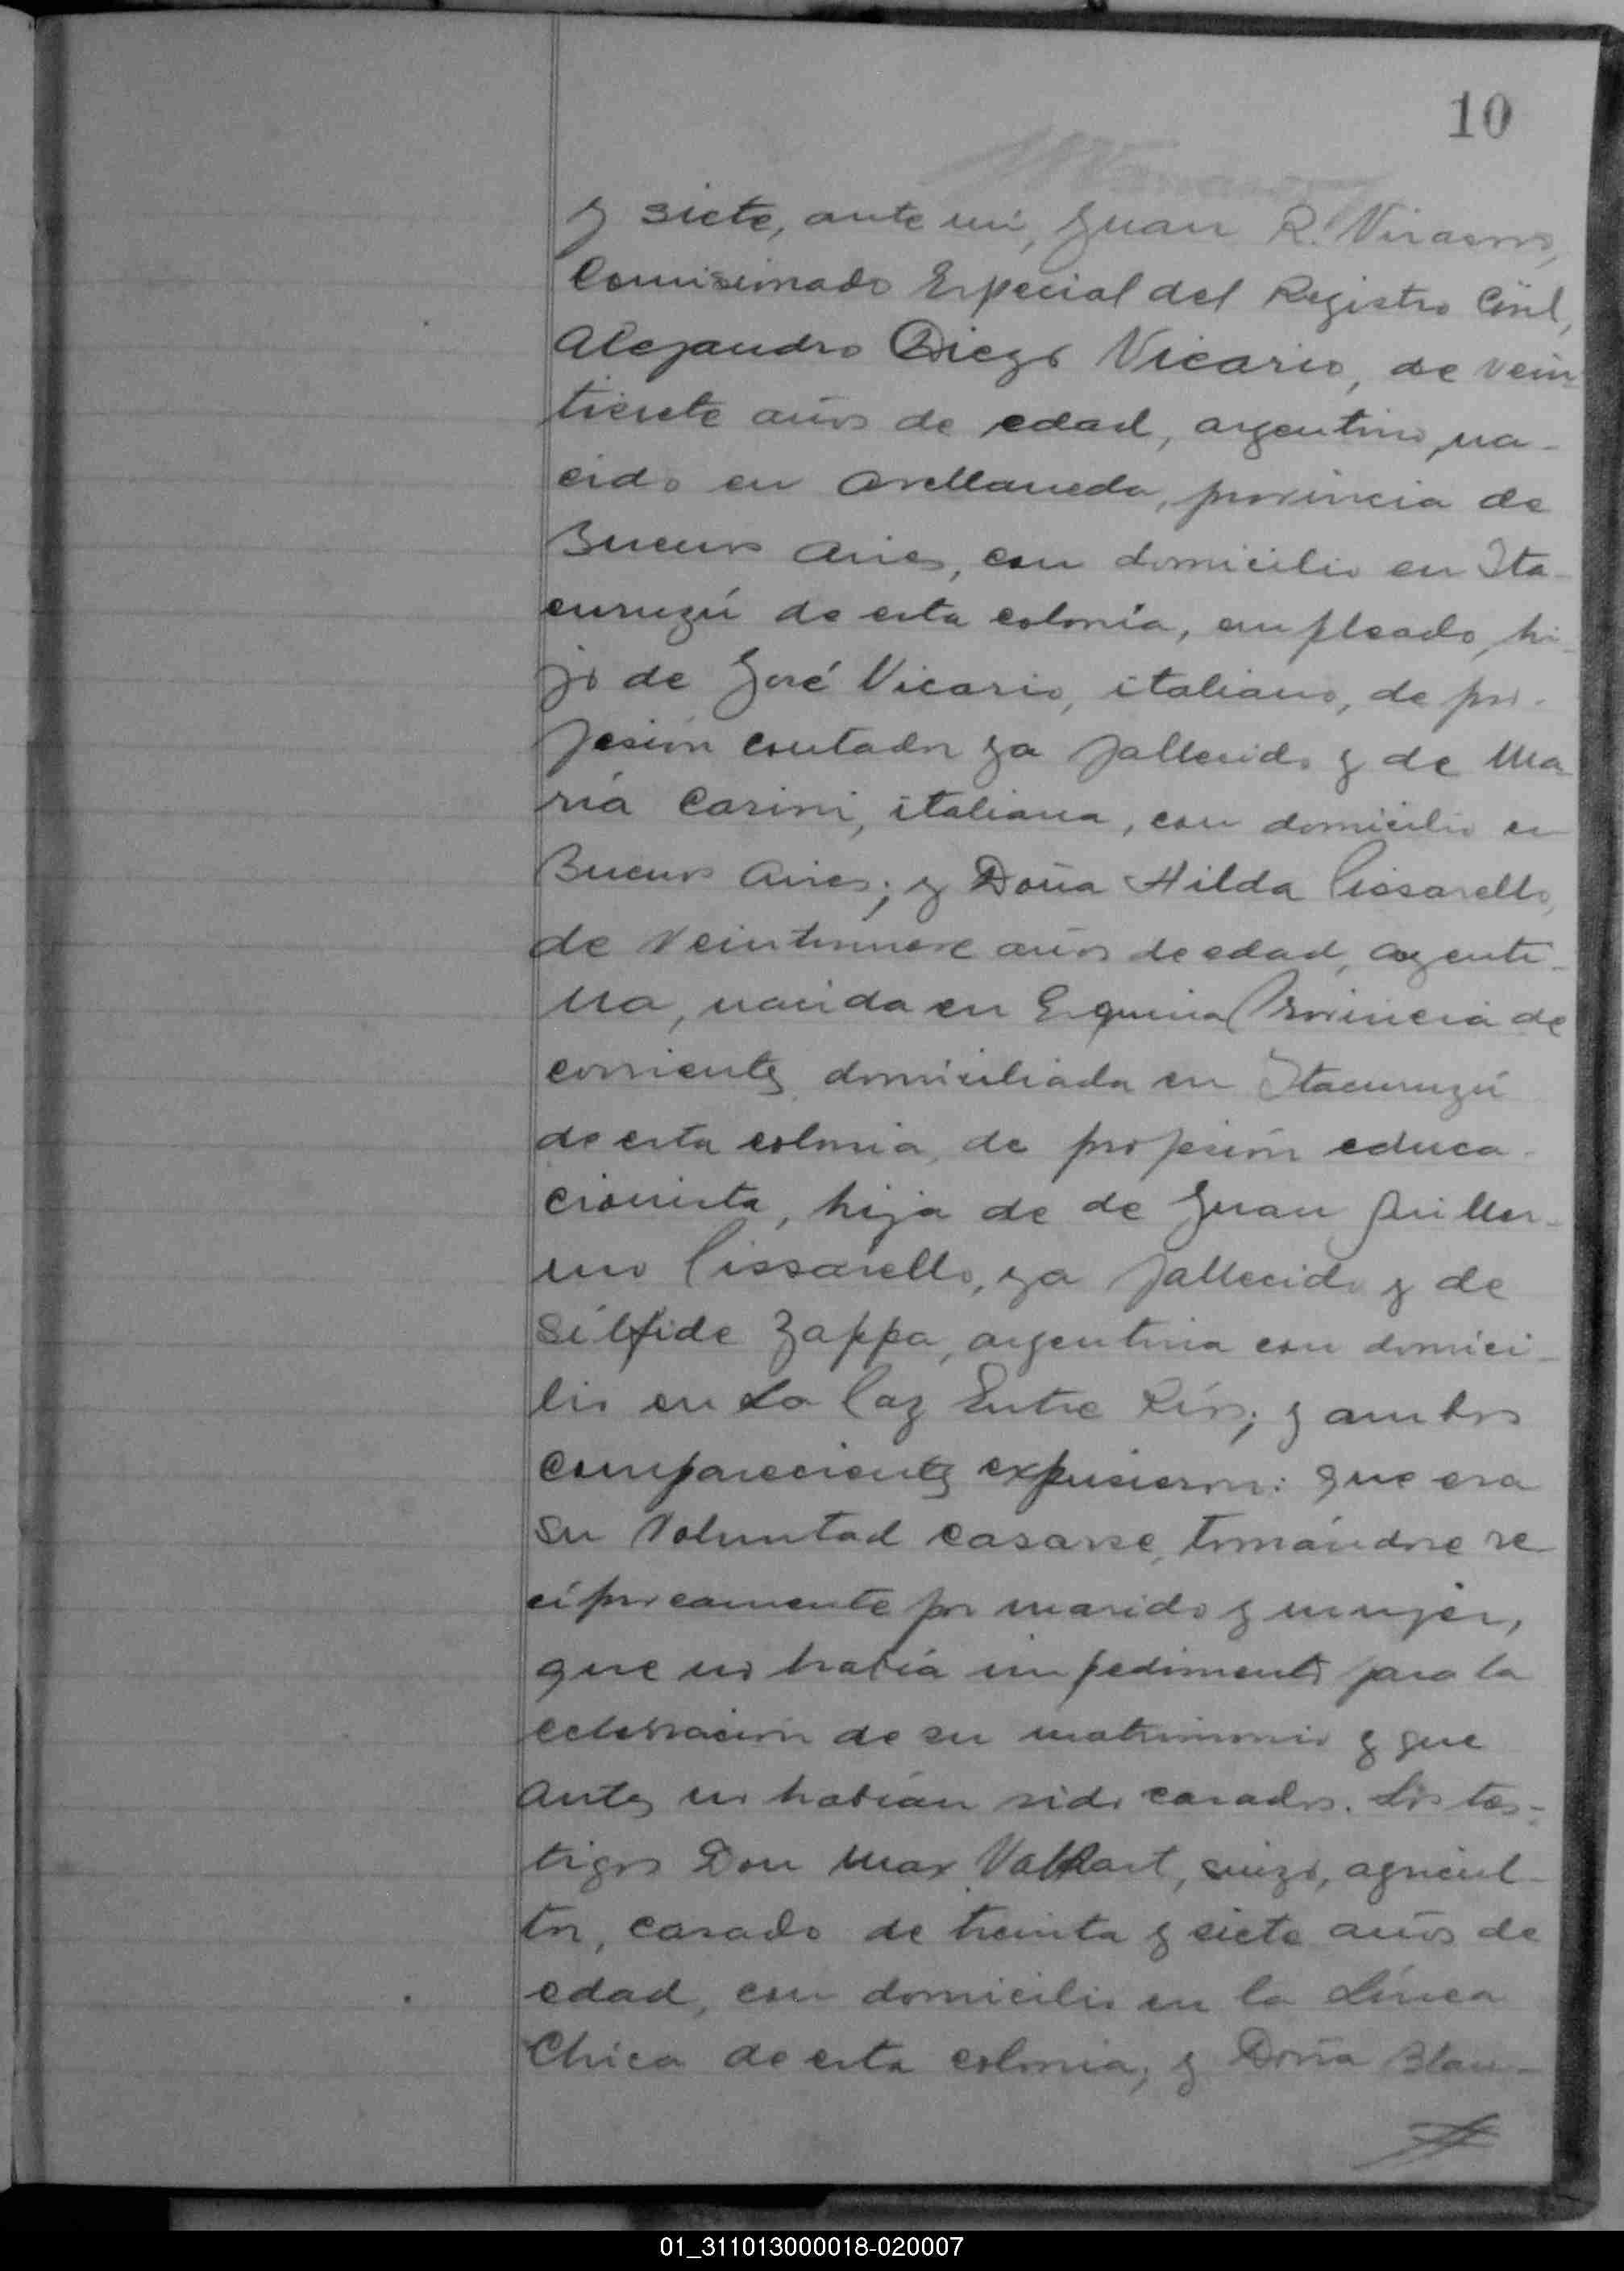 10
y siete, ante mí, Juan R. Virasoro,
Comisionado Especial del Registro Civil,
Alejandro Diego Vicario, de vein
tisiete años de edad, argentino, na-
cido en Avellaneda, provincia de
Buenos Aires, con domicilio en Ita-
curuzú de esta colonia, empleado, hi-
jo de José Vicario, italiano, de pro-
fesión contador ya fallecido y de Ma
ría Carini, italiana, con domicilio en
Buenos Aires; y Doña Hilda Cissarello,
de veintinueve años de edad, argenti-
na, nacida en Esquina Provincia de
Corrientes domiciliada en Itacuruzú
de esta colonia, de profesión educa-
cionista, hija de de Juan Guiller-
mo Cissarello, ya fallecido y de
Sílfide Zappa, argentina con domici-
lio en La Paz Entre Ríos; y ambos
comparecientes expusieron: que era
su voluntad casarse, tomándose re
cíprocamente por marido y mujer,
que no había impedimento para la
celebración de su matrimonio y que
antes no habían sido casados. Los tes-
tigos Don Max, suizo, agricul-
tor, casado de treinta y siete años de
edad, con domicilio en la Línea
Chica de esta colonia; y Doña Blan-
01_311013000018-020007